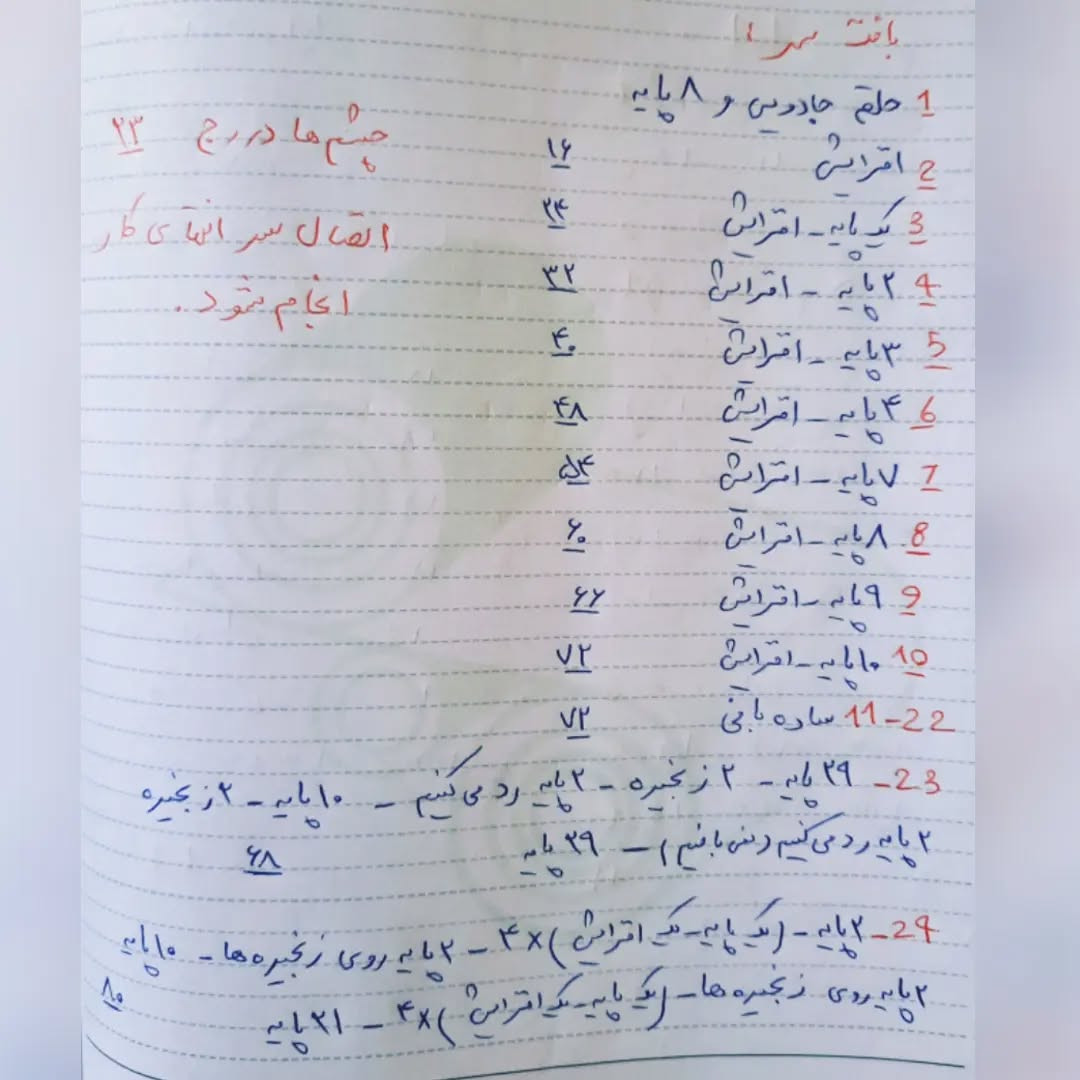 بافت سر :
1 حلقه جادویی و ۸ پایه
2 افزایش ۱۶
3 یک پایه - افزایش ۲۴
4 ۲ پایه - افزایش ۳۲
5 ۳ پایه - افزایش ۴۰
6 ۴ پایه - افزایش ۴۸
7 ۷ پایه - افزایش ۵۴
8 ۸ پایه - افزایش ۶۰
9 ۹ پایه - افزایش ۶۶
10 ۱۰ پایه - افزایش ۷۲
11-22 ساده بافی ۷۲
23- ۲۹ پایه - ۲ زنجیره - ۲ پایه رد می کنیم - ۱۰ پایه - ۲ زنجیره
۲ پایه رد می کنیم (نمی بافیم) - ۲۹ پایه ۶۸
24- ۲ پایه - (یک پایه - یک افزایش)×۴ - ۲ پایه روی زنجیره ها - ۱۰ پایه
۲ پایه روی زنجیره ها - (یک پایه - یک افزایش)×۴ - ۲۱ پایه ۸۰
چشم ها در رج ۲۳
اتصال سر انتهای کار
انجام شود.